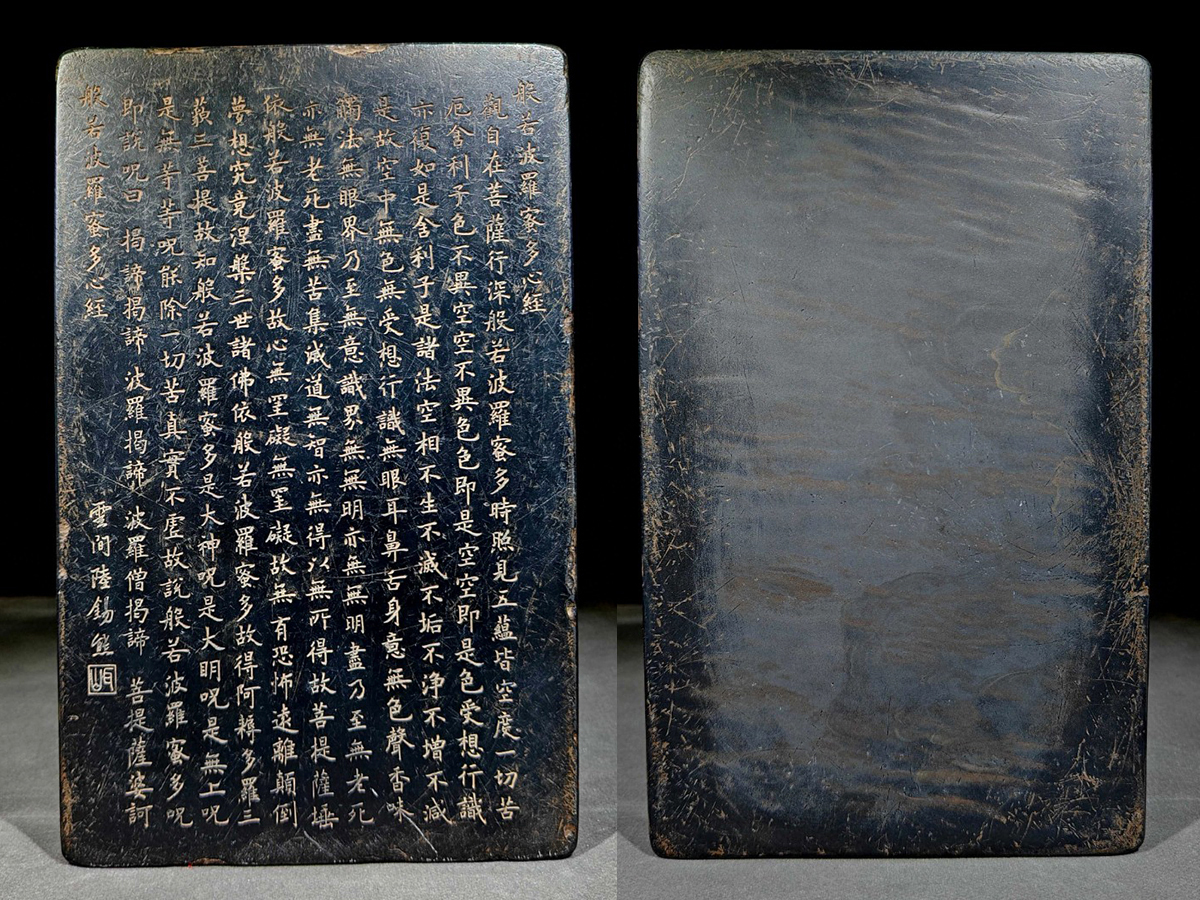 般若波羅蜜多心經
觀自在菩薩行深般若波羅蜜多時照見五蘊皆空度一切苦
厄舍利子色不異空空不異色色即是空空即是色受想行識
亦復如是舍利子是諸法空相不生不滅不垢不淨不增不減
是故空中無色無受想行識無眼耳鼻舌身意無色聲香味
觸法無眼界乃至無意識界無無明亦無無明盡乃至無老死
亦無老死盡無苦集滅道無智亦無得以無所得故菩提薩埵
依般若波羅蜜多故心無罣礙無罣礙故無有恐怖遠離顛倒
夢想究竟涅槃三世諸佛依般若波羅蜜多故得阿耨多羅三
藐三菩提故知般若波羅蜜多是大神呪是大明呪是無上呪
是無等等呪能除一切苦真實不虛故說般若波羅蜜多呪
即說呪曰 揭諦揭諦 波羅揭諦 波羅僧揭諦 菩提薩婆訶
般若波羅蜜多心經 雲間陸錫熊